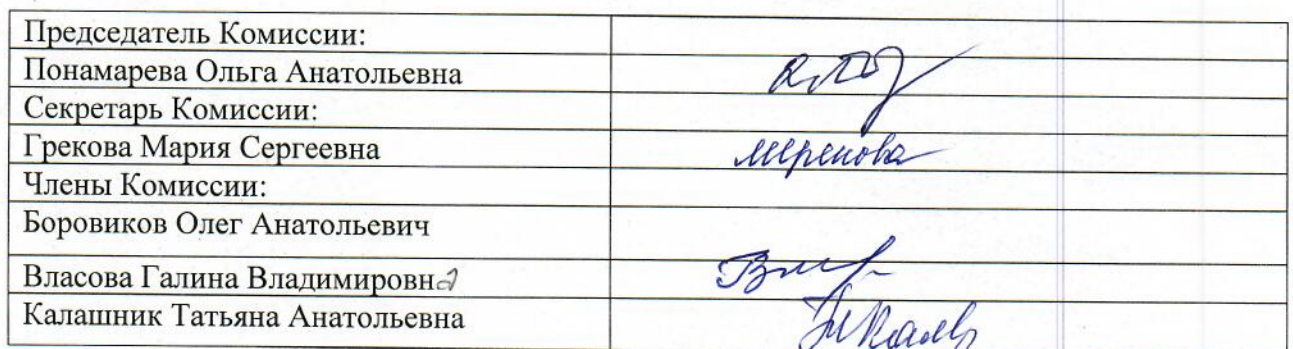 Председатель Комиссии:
Понамарева Ольга Анатольевна
Секретарь Комиссии:
Грекова Мария Сергеевна
Члены Комиссии:
Боровиков Олег Анатольевич
Власова Галина Владимировна
Калашник Татьяна Анатольевна